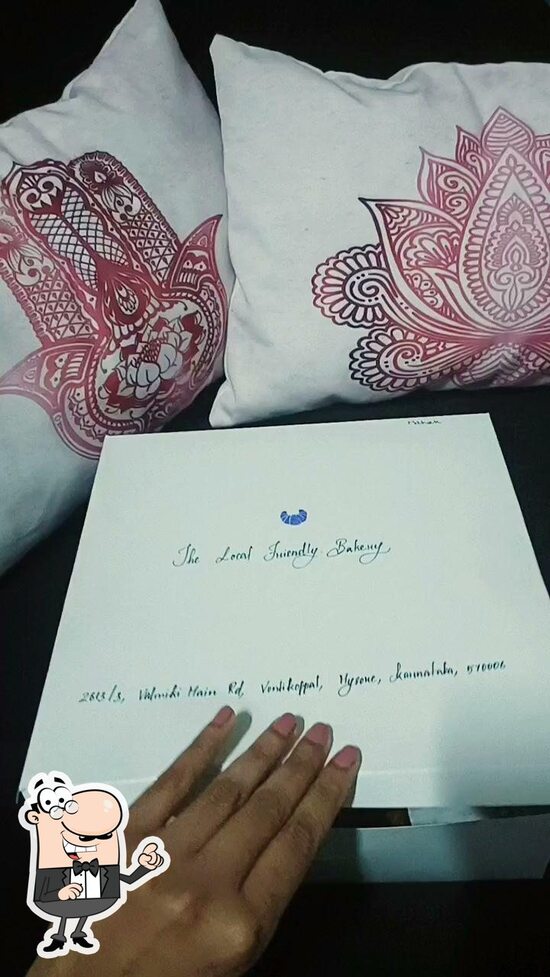 The Local Friendly Bakery
2613/3, Valmiki Main Rd, Vontikoppal, Mysore, Karnataka, 570006